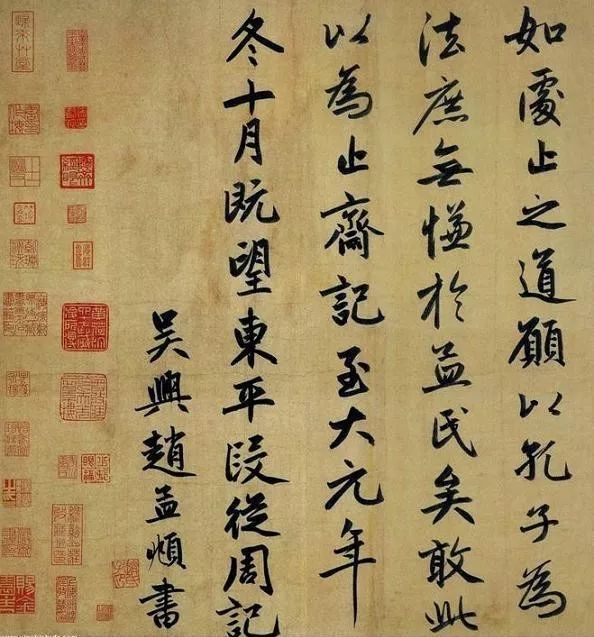 如處止之道願以孔子為
法庶無慊於益民矣敢此
以為止齋記至大元年
冬十月既望東平段從周記
吳興趙孟頫書